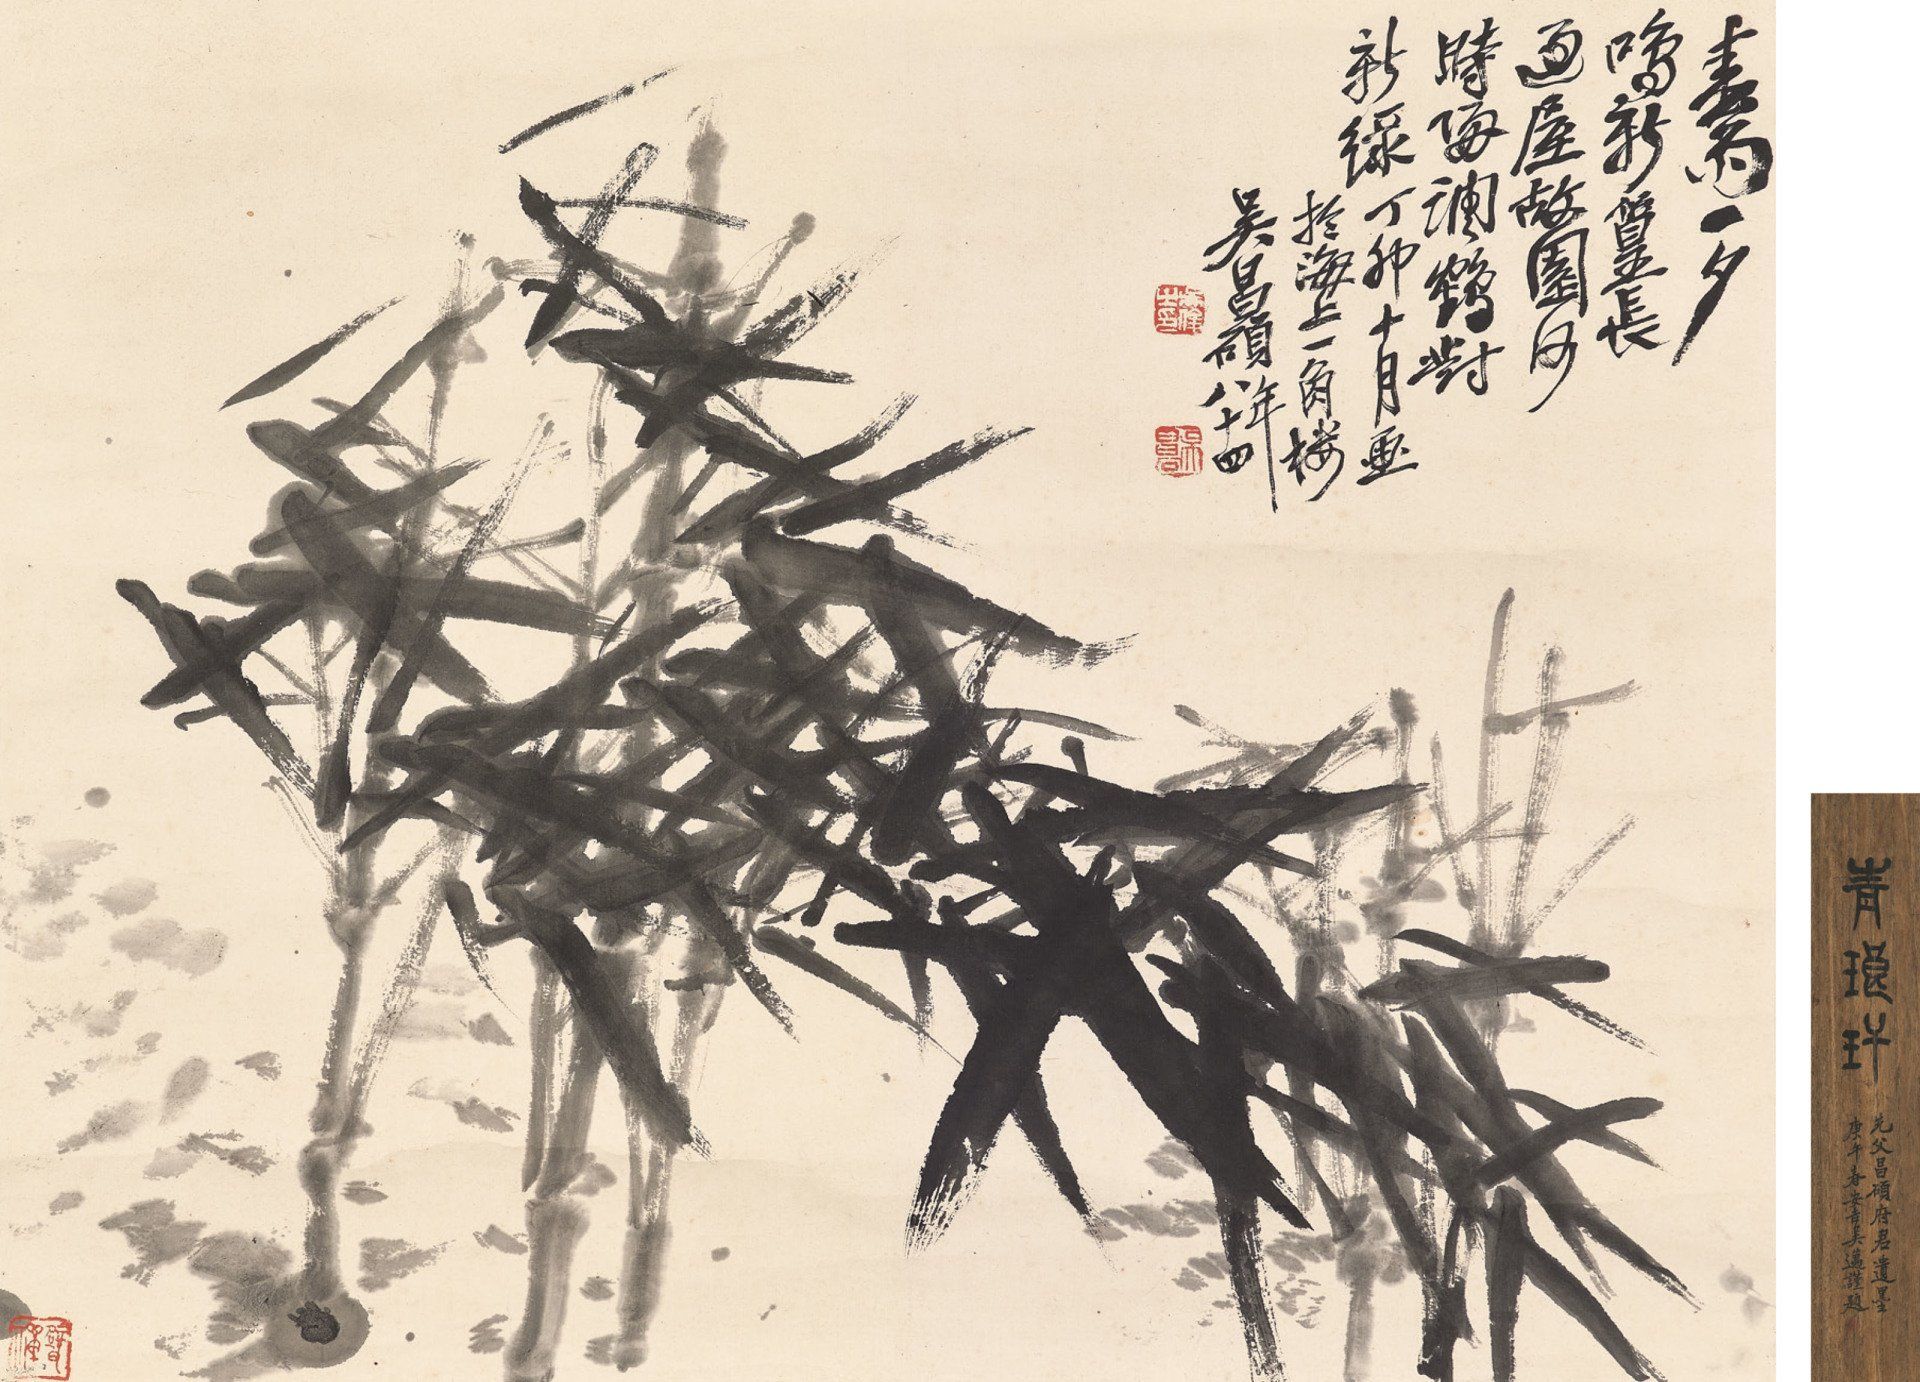 春雷一夕
鳴新篁長
過屋故園何
時歸調鶴對
新綠丁卯十月畫
於海上一角樓
吳昌碩年八十四
青琅玕
先父昌碩府君遺墨
庚午春安吉吳邁謹題